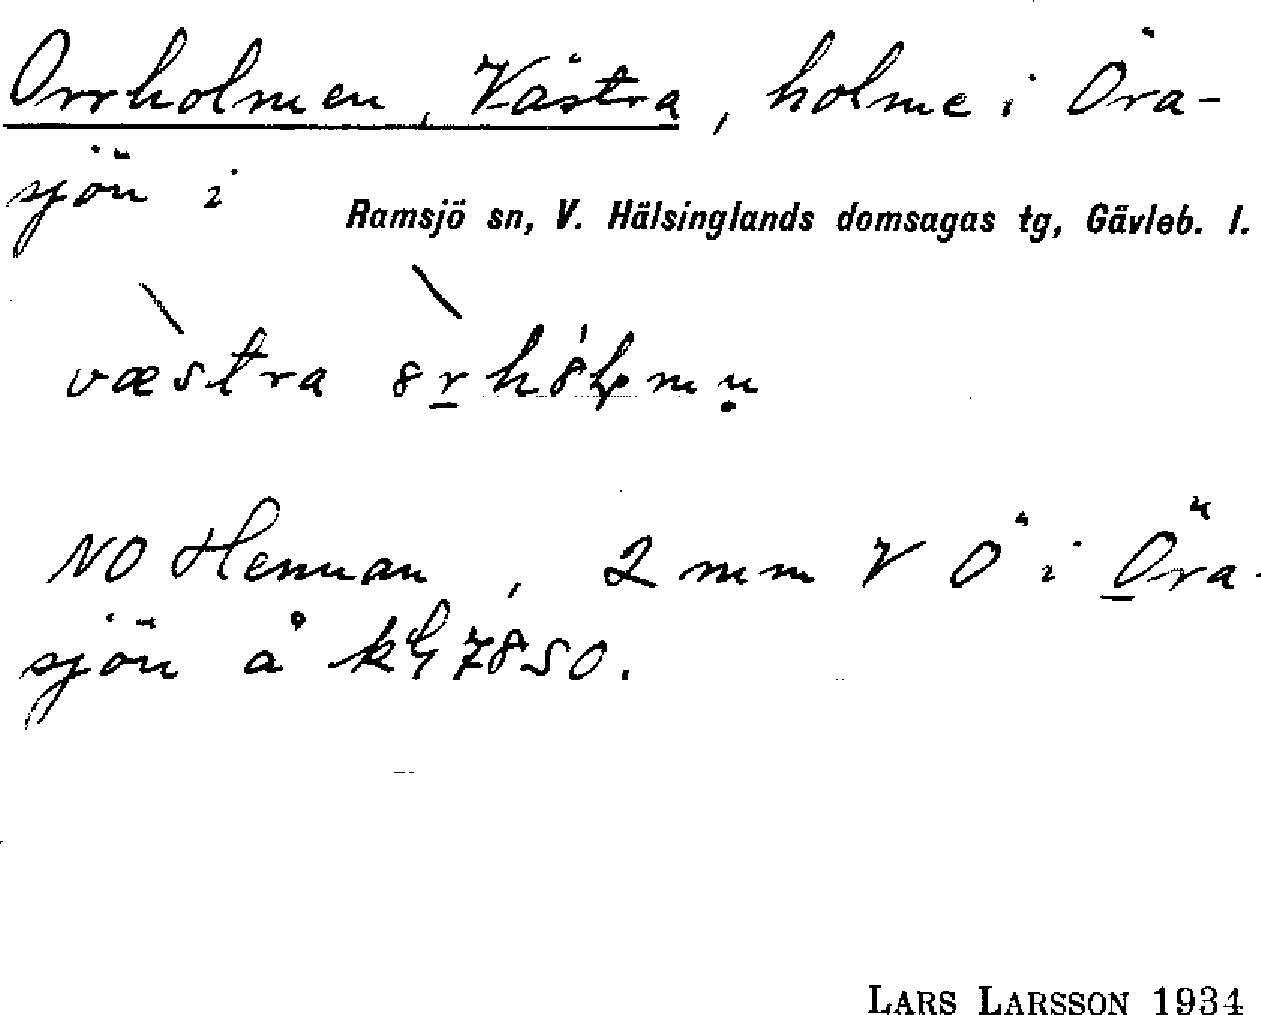 Orrholmen, Västra, holme i Öra-
sjön i
Ramsjö sn, V. Hälsinglands domsagas tg, Gävleb. l.
væstra
NO Hennan, 2 mm V Ö i Öra-
sjön å kbl 7850.
LARS LARSSON 1934